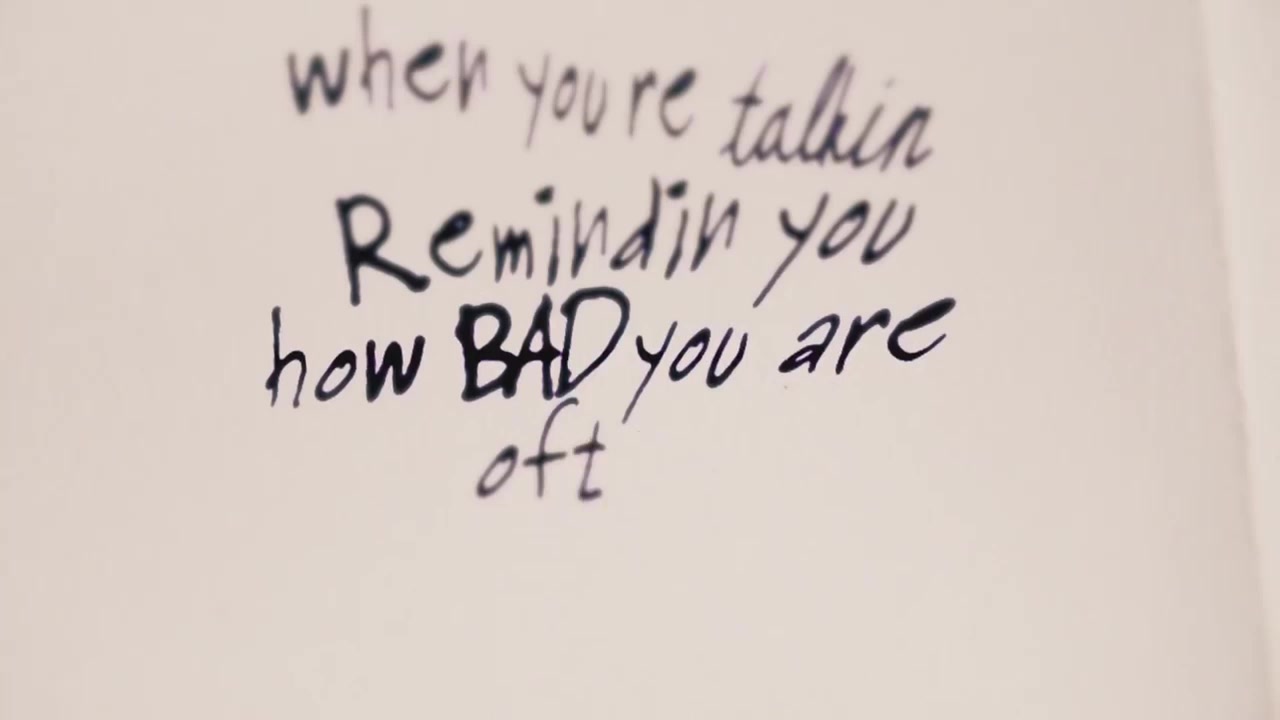 when you're talkin
Remindin you
how BAD you are
oft